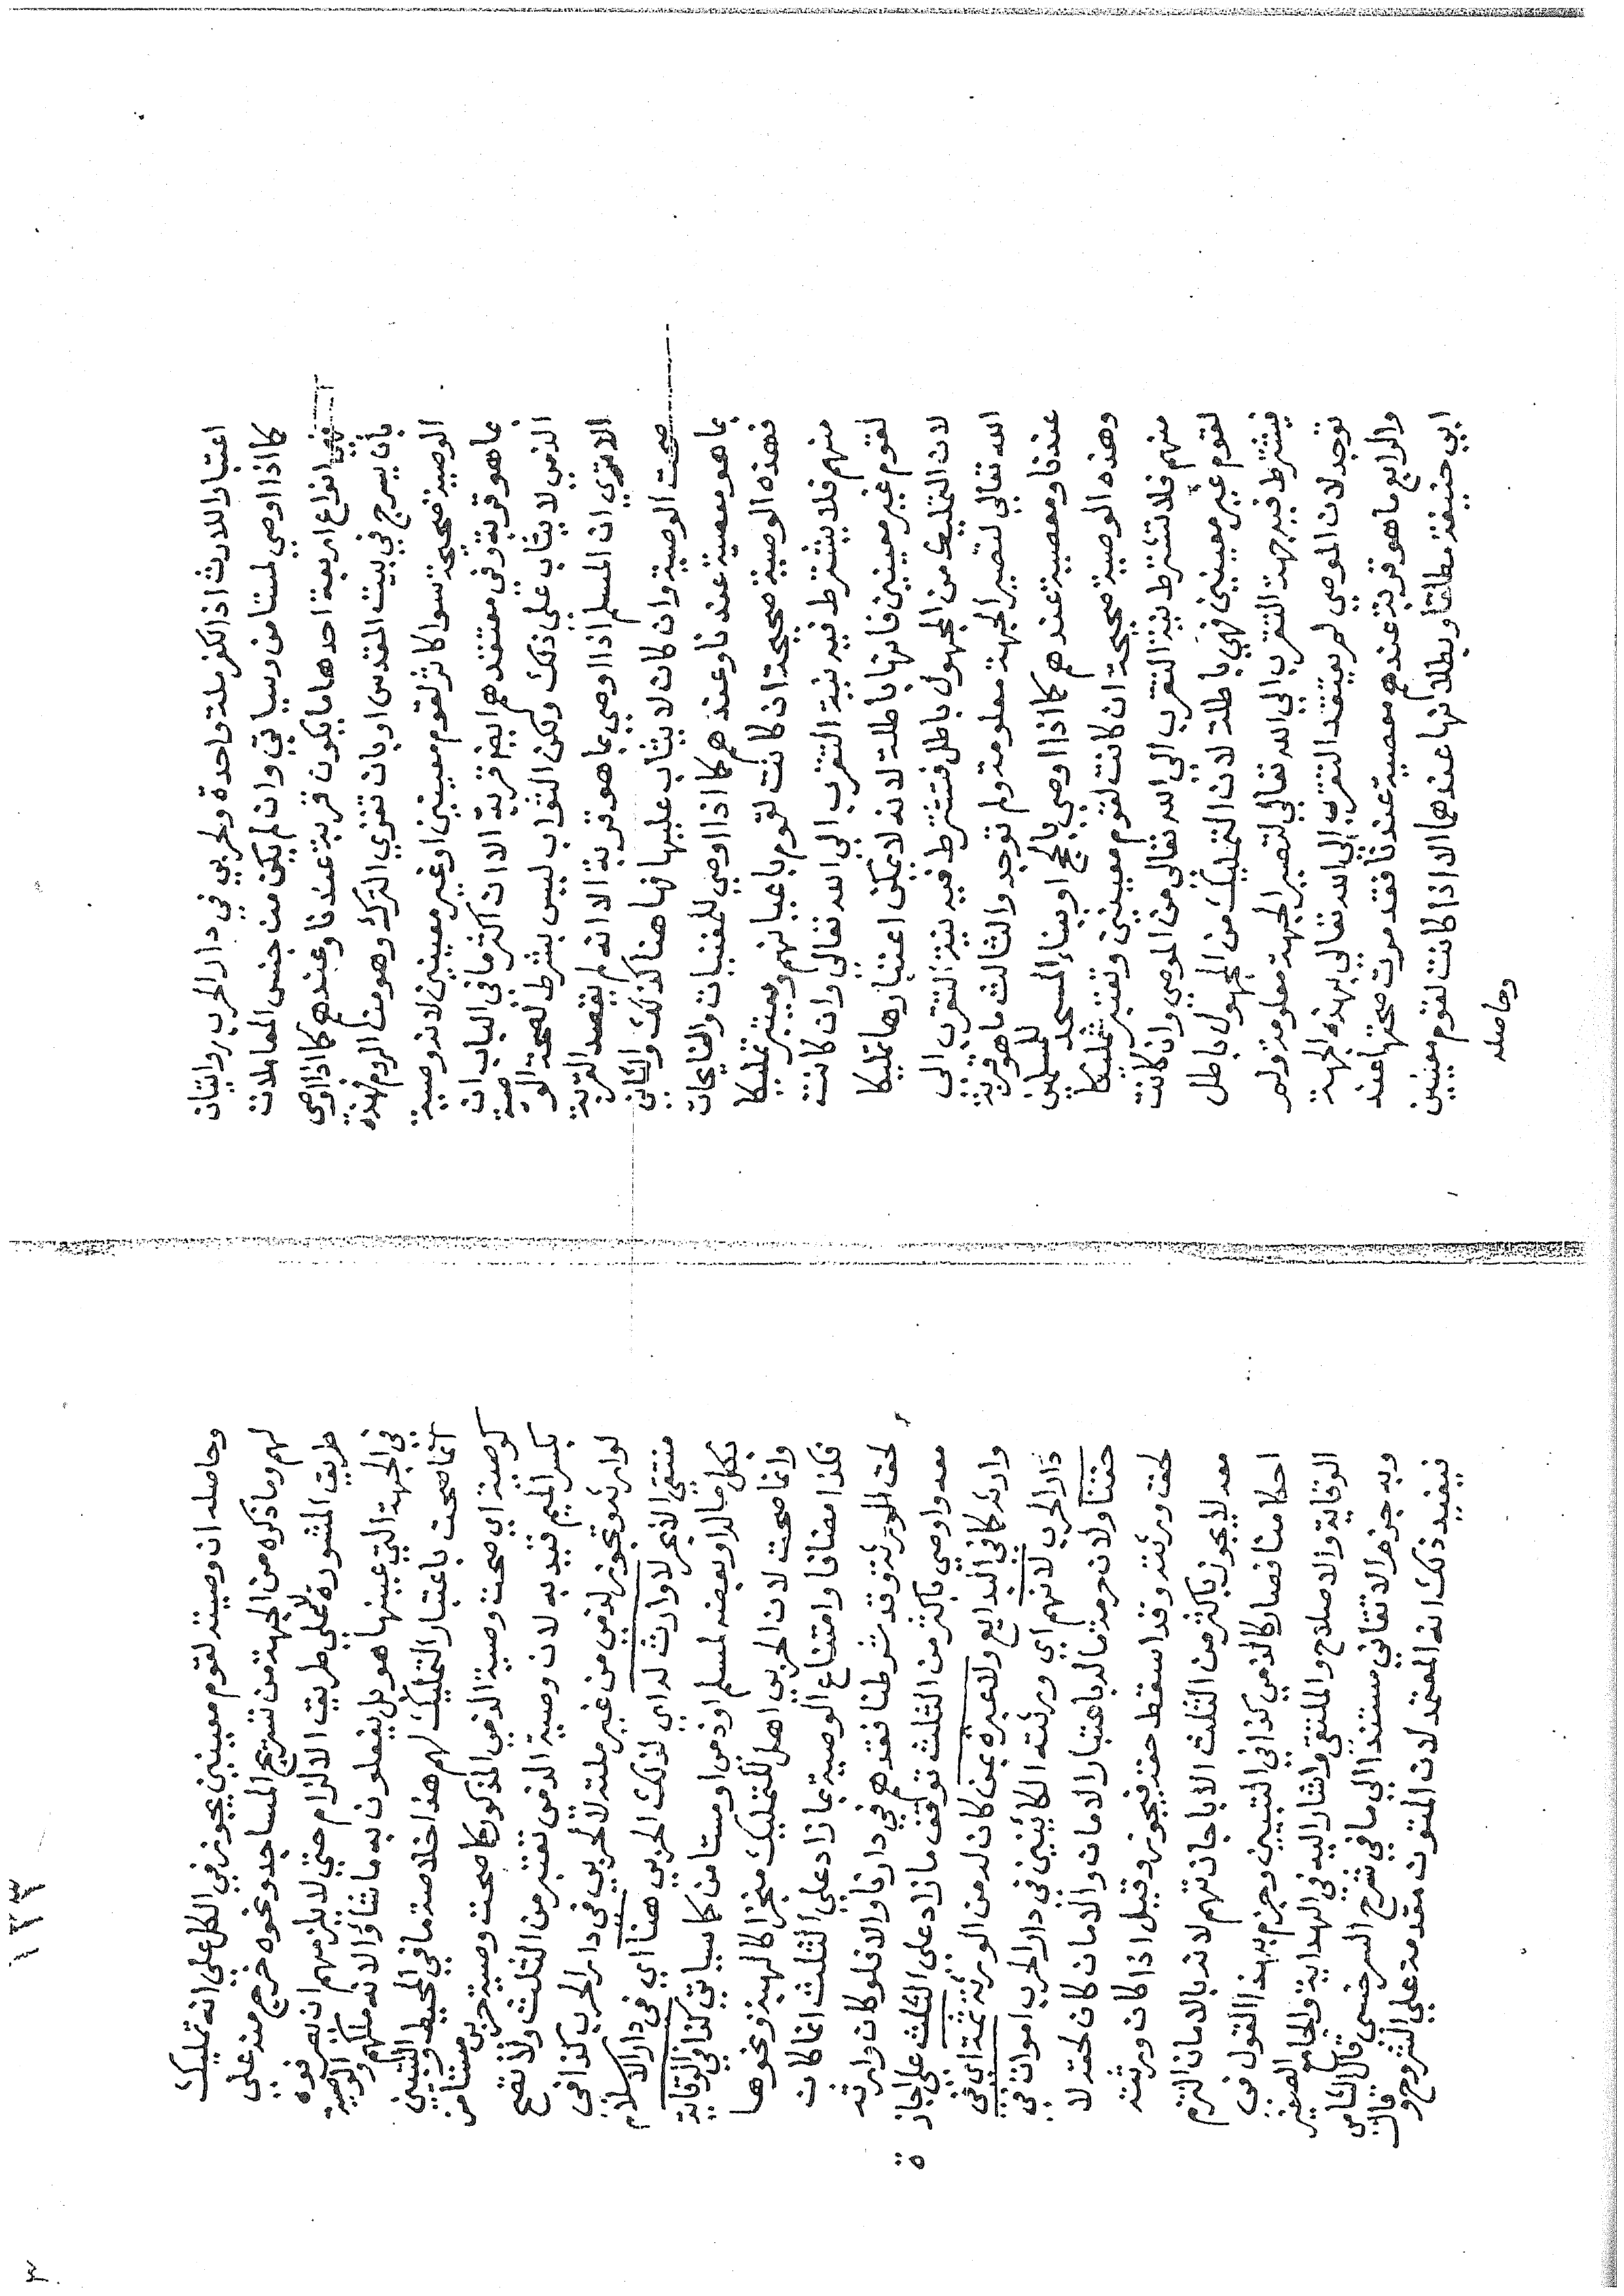 اعتبارا للارث اذ الكفر ملة واحدة ولحربي في دار الحرب روايتان
كما اذا اوصي لمستامن وسياتي وان لم يكن من جنس المعاملات
فهي انواع اربعة احدها ما يكون قربة عندنا وعندهم كما اذا اوصي
بان يسرج في بيت المقدس او بان تغزي الترك وهو من الروم فهذه
الوصية صحيحة سوا كانت لقوم معينين او غير معينين لانه وصية
بما هو قربة وفي معتقدهم ايضا قربة الا ان اكثر ما في الباب ان
الذمي لا يثاب علي ذلك ولكن الثواب ليس بشرط لصحة الوصية
الا تري ان المسلم اذا اوصي بما هو قربة الا انه لم يقصد القربة
صحت الوصية وان كان لا يثاب عليها فها هنا كذلك والثاني
بما هو معصية عندنا وعندهم كما اذا اوصي للمغنيات والنايحات
فهذه الوصية صحيحة ان كانت لقوم باعيانهم ويعتبر تمليكا
منهم فلا يشترط فيه نية التقرب الي الله تعالي وان كانت
لقوم غير معينين فانها باطلة لانه لا يمكن اعتبارها تمليكا
لان التمليك من المجهول باطل فتشترط فيه نية التقرب الي
الله تعالي لتصير الجهة معلومة ولم توجد والثالث ما هو قربة
عندنا ومعصية عندهم كما اذا اوصي بالحج او ببناء المسجد للمسلمين
وهذه الوصية صحيحة ان كانت لقوم معينين وتعتبر تمليكا
منهم فلا تشترط نية التقرب الي الله تعالي من الموصي وان كانت
لقوم غير معينين فهي باطلة لان التمليك من المجهول باطل
فيشترط فيه جهة التقرب الي الله تعالي لتصير الجهة معلومة ولم
توجد لان الموصي لم يعتقد التقرب الي الله تعالي بهذه الجهة
والرابع ما هو قربة عندهم معصية عندنا فقد مرت صحتها عند
ابي حنيفة مطلقا وبطلانها عندهما الا اذا كانت لقوم معينين
وحاصله
وحاصله ان وصيته لقوم معينين يجوز في الكل علي انه تمليك
لهم وما ذكره من الجهة من تسريج المساجد ونحوه خرج منه علي
طريق المشورة لا علي طريق الالزام حتي لا يلزمهم ان يصرفوه
في الجهة التي عينها هو بل يفعلون به ما شاؤا لانه ملكهم والوصية
انما صحت باعتبار التمليك لهم هذا خلاصة ما في المحيط والتبيين
كوصية اي صحت وصية الذمي المذكور كما صحت وصية حربي مستامن
بكسر الميم قيد به لان وصية الذمي تعتبر من الثلث ولا تصح
لوارثه وتجوز لذمي من غير ملته لا لحربي في دار الحرب كذا في
ملتقي الابحر لا وارث له اي لذلك الحربي هنا اي في دار الاسلام
بكل ماله او بعضه لمسلم او ذمي او مستامن كما سياتي كذا في الوقاية
وانما صحت لان الحربي اهل للتمليك منجزا كالهبة ونحوها
فكذا مضافا وامتناع الوصية بما زاد علي الثلث انما كان
لحق الورثة وقد شرطنا فقدهم في دارنا والا فلو كان وارثه
معه واوصي باكثر من الثلث توقف ما زاد علي الثلث علي اجازة
وارثه كما في البدايع ولا عبرة بمن كان له من الورثة ثمة اي في
دار الحرب لانهم اي ورثته الكائنين في دار الحرب اموات في
حقنا ولان حرمة ماله باعتبار الامان والامان كان لحقه لا
لحق ورثته وقد اسقط حقه فيجوز وقيل اذا كان ورثته
معه لا يجوز باكثر من الثلث الا باجازتهم لانه بالامان التزم
احكامنا فصار كالذمي كذا في التبيين وجزم بهذا القول في
الوقاية والاصلاح والملتقي واشار اليه في الهداية والجامع الصغير
وبه جزم الاتقاني مستندا الي ما في شرح السرخسي قال
فيفيد ذلك انه المعتمد لان المتون مقدمة علي الشروح و
١٢٣